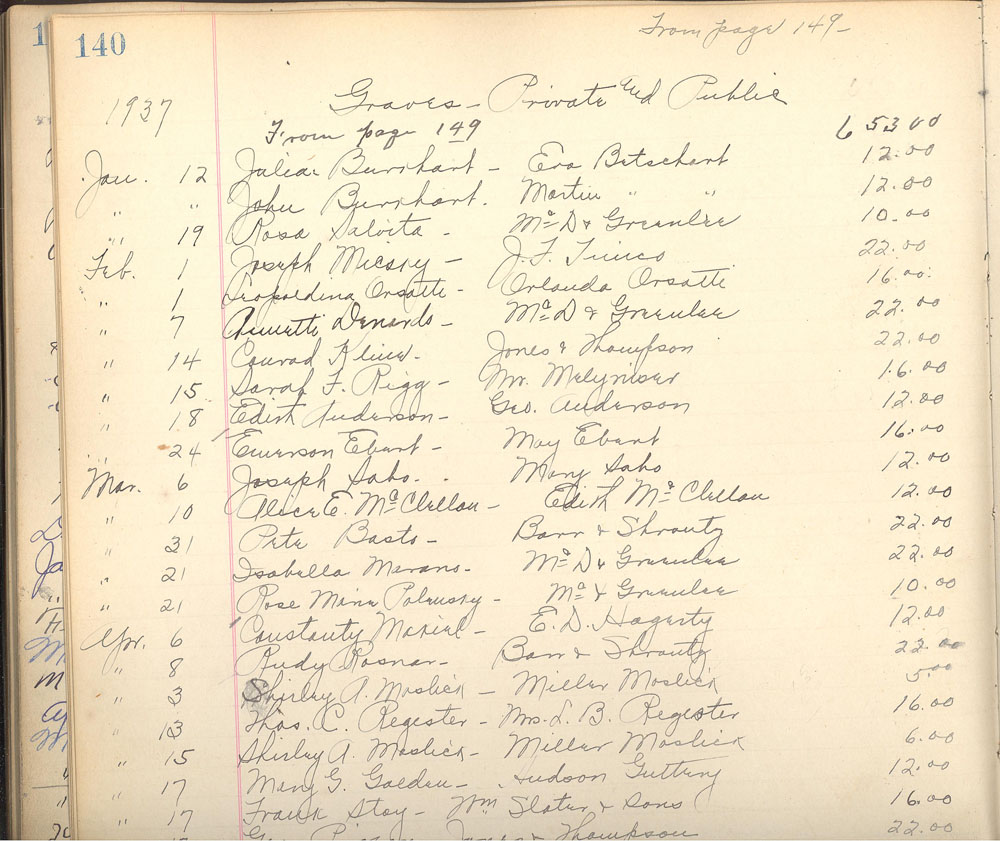 140
From page 149-
1937
Graves - Private and Public
From page 149 653.00
Jan. 12 Julia Burkhart - Eva Betschart 12.00
" " John Burkhart. Martin " " 12.00
" 19 Rosa Salvita - McD & Greenlee 10.00
Feb. 1 Joseph Micsky - J.F. 22.00
" 1 Leopoldina Orsatti - Orlando Orsatti 16.00
" 7 Denardo - McD & Greenlee 22.00
" 14 Conrad Kline - Jones & Thompson 22.00
" 15 Sarah F. Rigg - Mr. 16.00
" 18 Edith Anderson - Geo. Anderson 12.00
" 24 Emerson Ebert - May Ebert 16.00
Mar. 6 Joseph Saho. - Mary Saho 12.00
" 10 Alice E. McClellan - Edith McClellan 12.00
" 31 Pete Basto - Barr & Shrontz 22.00
" 21 Isabella Marano - McD & Greenlee 22.00
" 21 Rose Marie - Mc & Greenlee 10.00
Apr. 6 - E.D. Hagerty 12.00
" 8 Rudy Rosnar - Barr & Shrontz 22.00
" 3 Shirley A. Moslick - Miller Moslick 5.00
" 13 Thos. C. Register - Mrs. L. B. Register 16.00
" 15 Shirley A. Moslick - Miller Moslick 6.00
" 17 Mary G. Golden - Hudson Guttery 12.00
" 17 Frank Stoy - Wm Slater & Sons 16.00
Thompson 22.00